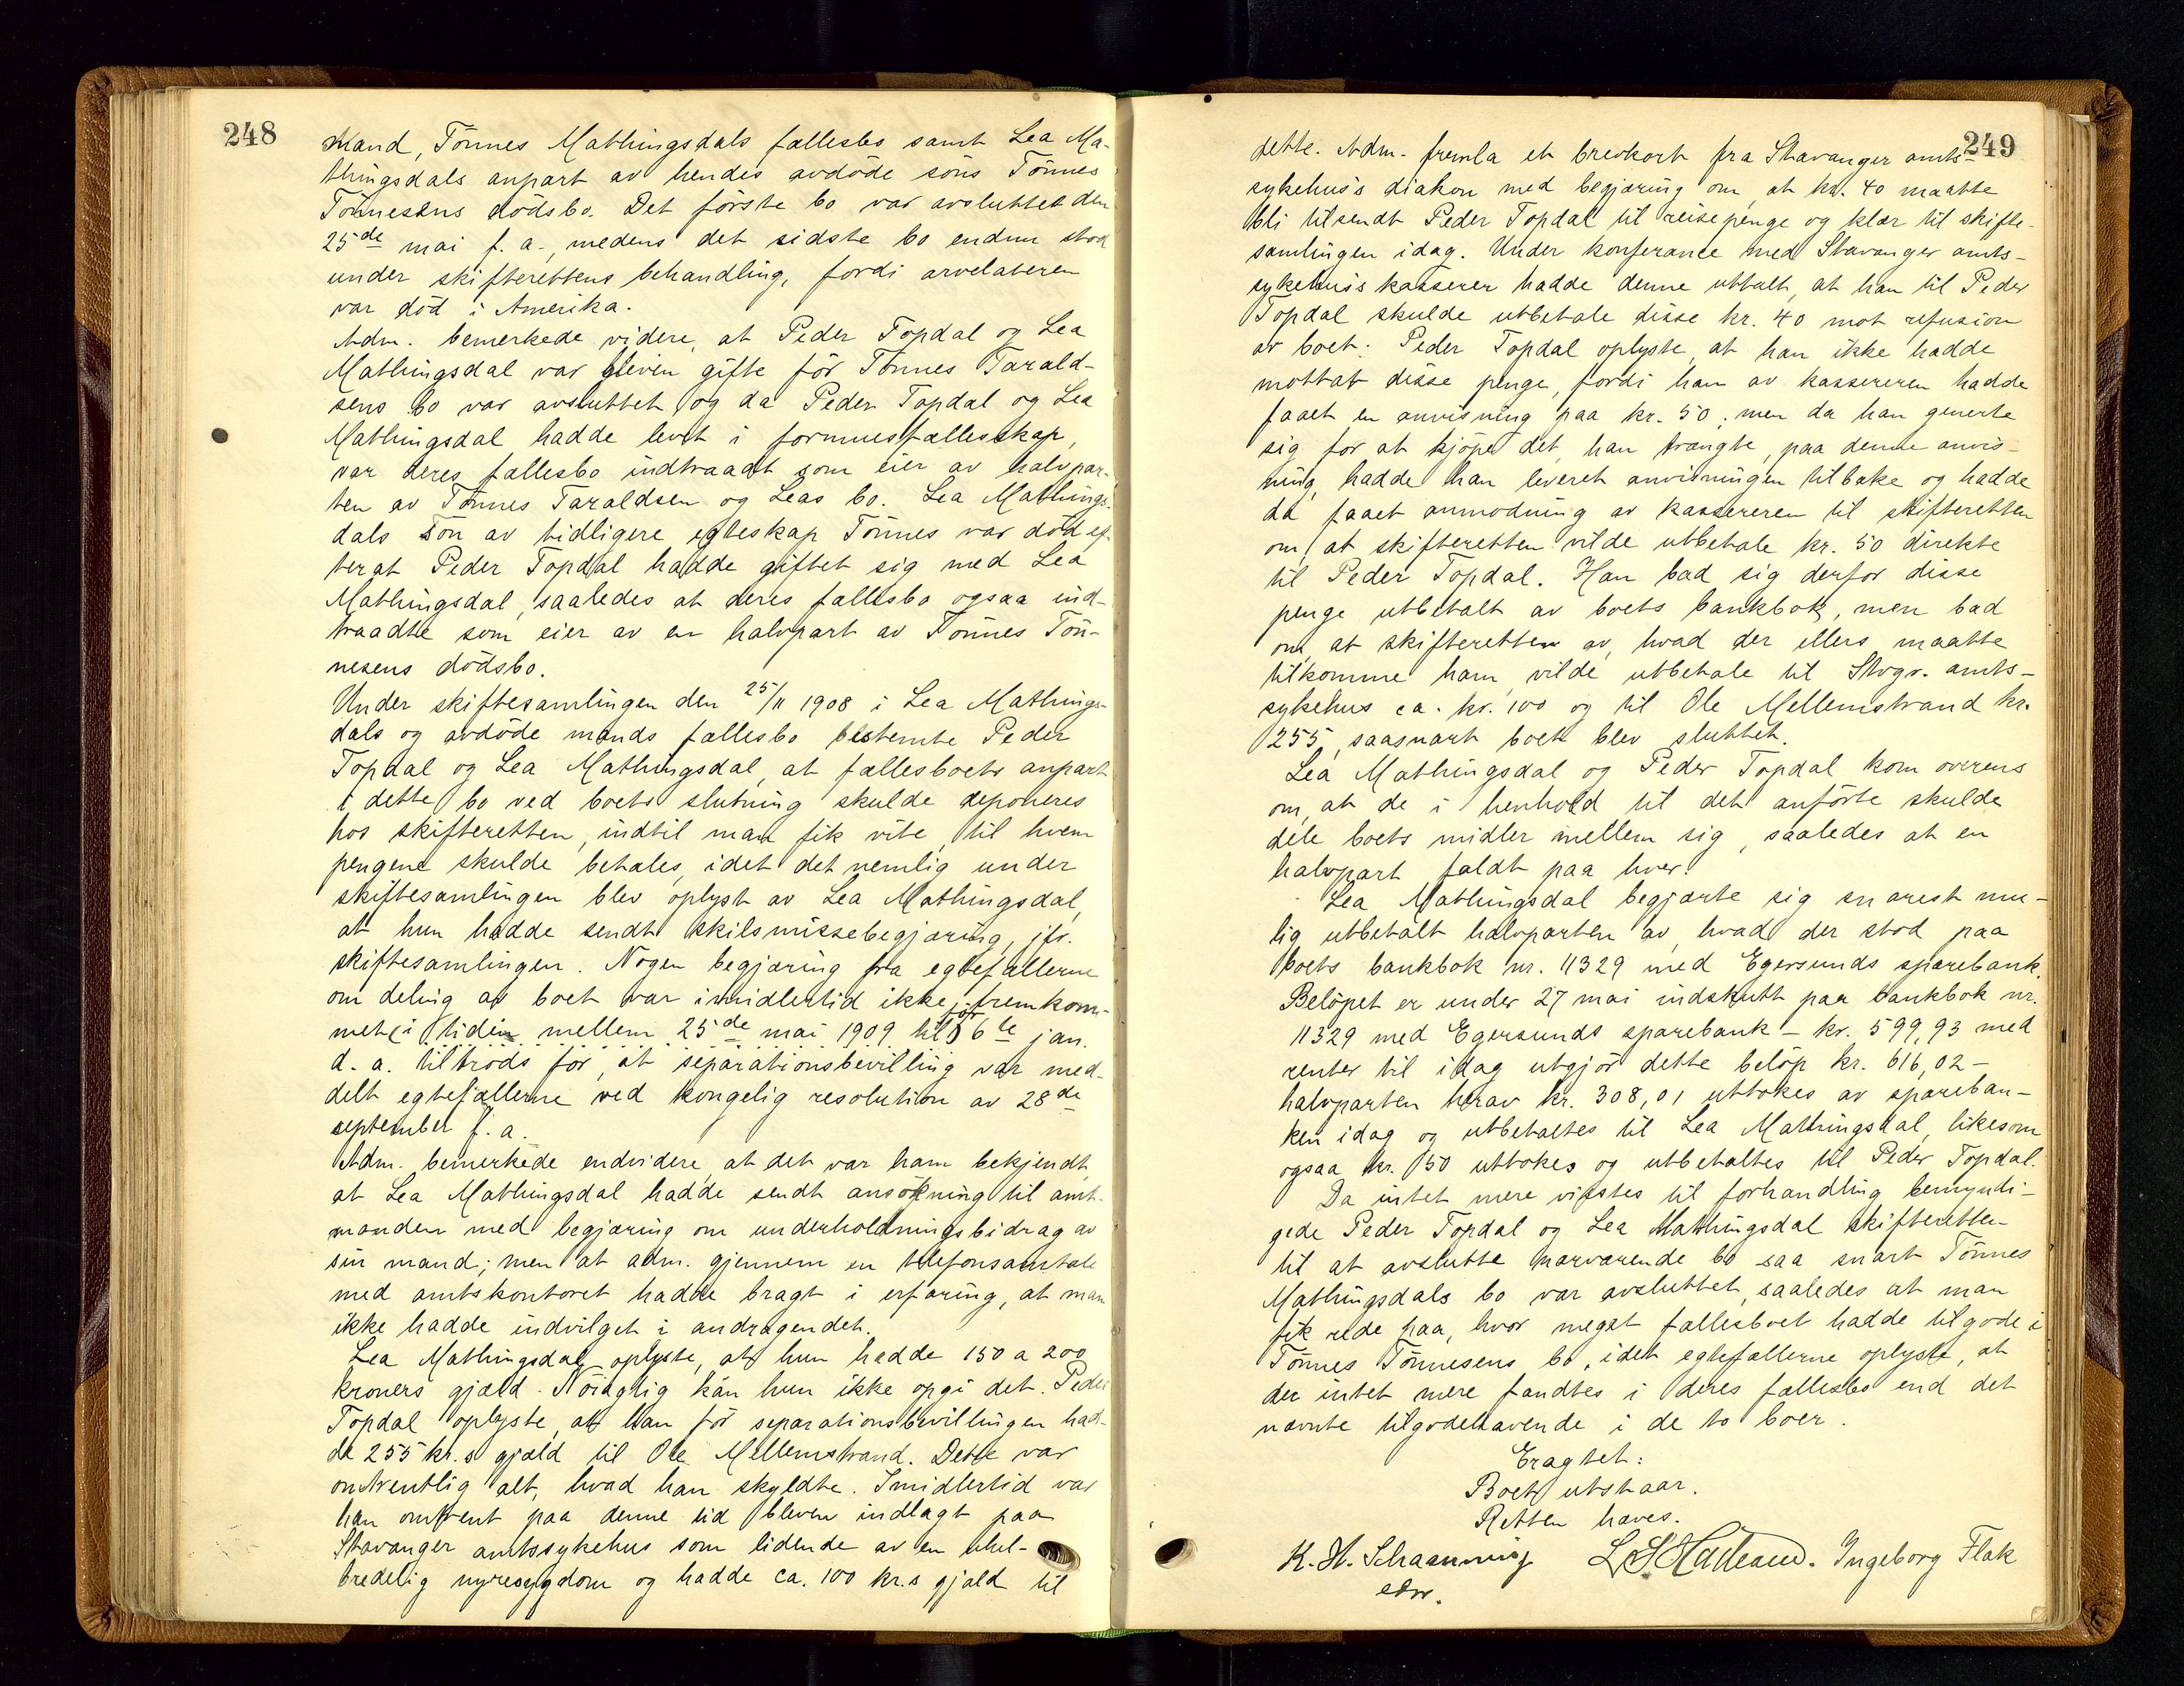 248
mand, Tönnes Mathingsdals fællesbo samt Lea Ma-
thingsdals anpart av hendes avdöde söns Tönnes
Tönnesens dödsbo. Det förste bo var avsluttet den
25de mai f. a., medens det sidste bo endnu stod
under skifterettens behandling, fordi arvelateren
var död i Amerika.
Adm. bemerkede videre, at Peder Topdal og Lea
Mathingsdal var bleven gifte för Tönnes Tarald-
sens bo var avsluttet og da Peder Topdal og Lea
Mathingsdal hadde levet i formuesfællesskap,
var deres fællesbo indtraadt som eier av halvpar-
ten av Tönnes Taraldsen og Leas bo. Lea Mathings-
dals sön av tidligere egteskap Tönnes var död ef-
terat Peder Topdal hadde giftet sig med Lea
Mathingsdal, saaledes at deres fællesbo ogsaa ind-
traadte som eier av en halvpart av Tönnes Tön-
nesens dödsbo.
Under skiftesamlingen den 25/11 1908 i Lea Mathings-
dals og avdöde mands fællesbo bestemte Peder
Topdal og Lea Mathingsdal, at fællesboets anpart
i dette bo ved boets slutning skulde deponeres
hos skifteretten, indtil man fik vite, til hvem
pengene skulde betales, idet det nemlig under
skiftesamlingen blev oplyst av Lea Mathingsdal,
at hun hadde sendt skilsmissebegjæring, jfr.
skiftesamlingen. Nogen begjæring fra egtefællerne
om deling av boet var imidlertid ikke fremkom-
met i tiden mellem 25de mai 1909 til 6te jan.
d. a. tiltrods for, at separationsbevilling var med-
delt egtefællerne ved kongelig resolution av 28de
september f. a.
Adm. bemerkede endvidere, at det var ham bekjendt,
at Lea Mathingsdal hadde sendt ansökning til amt-
manden med begjæring om underholdningsbidrag av
sin mand; men at adm. gjennem en telefonsamtale
med amtskontoret hadde bragt i erfaring, at man
ikke hadde indvilget i andragendet.
Lea Mathingsdal oplyste, at hun hadde 150 a 200
kroners gjæld. Nöiagtig kan hun ikke opgi det. Peder
Topdal oplyste, at han för separationsbevillingen had-
de 255 kr.s gjæld til Ole Mellemstrand. Dette var
omtrentlig alt, hvad han skyldte. Imidlertid var
han omtrent paa denne tid bleven indlagt paa
Stavanger amtssykehus som lidende av en uhel-
bredelig nyresygdom og hadde ca. 100 kr.s gjæld til
249
dette. Adm. fremla et brevkort fra Stavanger amts-
sykehus's diakon med begjæring om, at kr. 40 maatte
bli tilsendt Peder Topdal til reisepenge og klær til skifte-
samlingen idag. Under konferance med Stavanger amts-
sykehus's kasserer hadde denne uttalt, at han til Peder
Topdal skulde utbetale disse kr. 40 mot refusion
av boet. Peder Topdal oplyste, at han ikke hadde
mottat disse penge, fordi han av kassereren hadde
faaet en anvisning paa kr. 50; men da han generte
sig for at kjöpe det, han trængte, paa denne anvis-
ning, hadde han leveret anvisningen tilbake og hadde
da faaet anmodning av kassereren til skifteretten
om, at skifteretten vilde utbetale kr. 50 direkte
til Peder Topdal. Han bad sig derfor disse
penge utbetalt av boets bankbok, men bad
om, at skifteretten av, hvad der ellers maatte
tilkomme ham, vilde utbetale til Stvgr. amts-
sykehus ca. kr. 100 og til Ole Mellemstrand kr.
255, saasnart boet blev sluttet.
Lea Mathingsdal og Peder Topdal kom overens
om, at de i henhold til det anförte skulde
dele boets midler mellem sig, saaledes at en
halvpart faldt paa hver.
Lea Mathingsdal begjærte sig snarest mu-
lig utbetalt halvparten av, hvad der stod paa
boets bankbok nr. 11329 med Egersunds sparebank.
Belöpet er under 27 mai indskutt paa bankbok nr.
11329 med Egersunds sparebank – kr. 599,93 med
renter til idag utgjör dette belöp kr. 616,02 –
halvparten herav kr. 308,01 uttokes av spareban-
ken idag og utbetaltes til Lea Mathingsdal, likesom
ogsaa kr. 50 uttokes og utbetaltes til Peder Topdal.
Da intet mere vistes til forhandling bemyndi-
gede Peder Topdal og Lea Mathingsdal skifteretten
til at avslutte nærværende bo saa snart Tönnes
Mathingsdals bo var avsluttet, saaledes at man
fik rede paa, hvor meget fællesboet hadde tilgode i
Tönnes Tönnesens bo, idet egtefællerne oplyste, at
der intet mere fandtes i deres fællesbo end det
nævnte tilgodehavende i de to boer.
Eragtet:
Boet utstaar.
Retten hæves.
K. H. Schaanning L. S. Ingeborg Flak
edw.